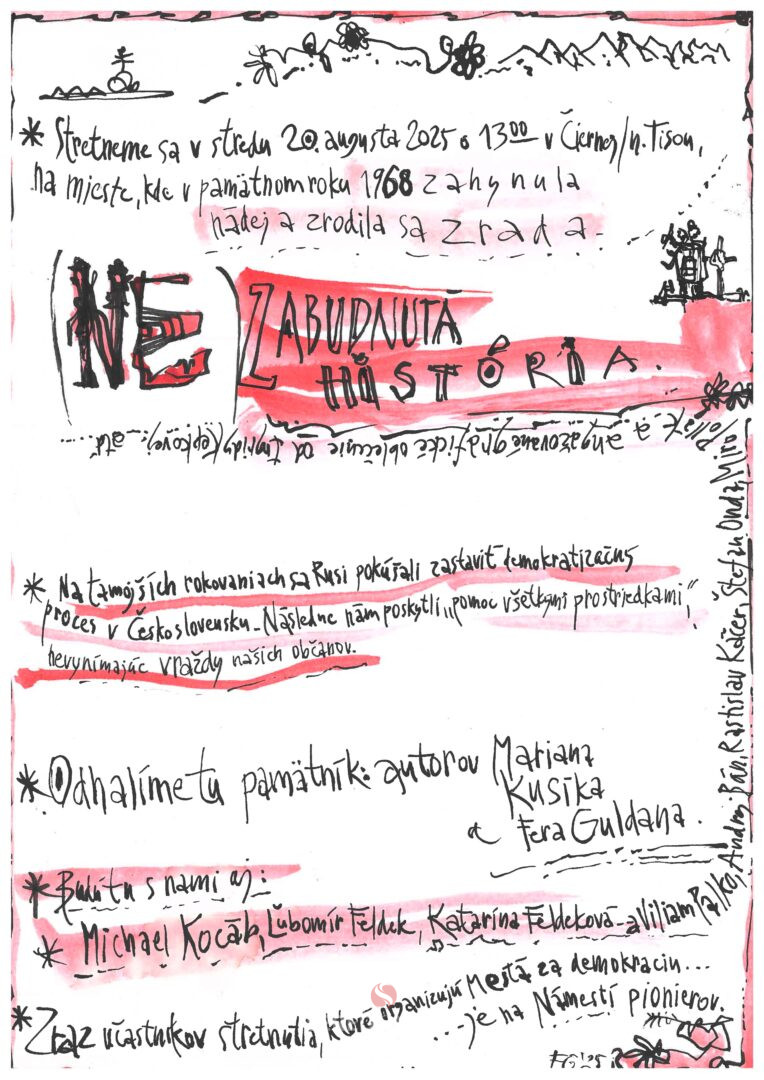 * Stretneme sa v stredu 20. augusta 2025 o 13 00 v Čiernej/n. Tisou,
na mieste, kde v pamätnom roku 1968 zahynula
nádej a zrodila sa zrada
(NE) ZABUDNUTÁ
HISTÓRIA.
* Na tamojších rokovaniach sa Rusi pokúšali zastaviť demokratizačný
proces v Československu. Následne nám poskytli „pomoc všetkými prostriedkami",
nevynímajúc vraždy našich občanov.
* Odhalíme tu pamätník: autorov Mariana
Kusika
a Fera Guldana.
* Budú tu s nami aj:
* Michael Kocáb, Ľubomír Feldek, Katarína Feldeková a Viliam Palko,
Andrej Bán, Rastislav Káčer, Štefan Onda, Miro
Pollák a angažované grafické oblečenie od Ingridy Kepkovej, atď......
* Zraz účastníkov stretnutia, ktoré organizujú Mestá za demokraciu...
...je na Námestí pionierov.
FG '25